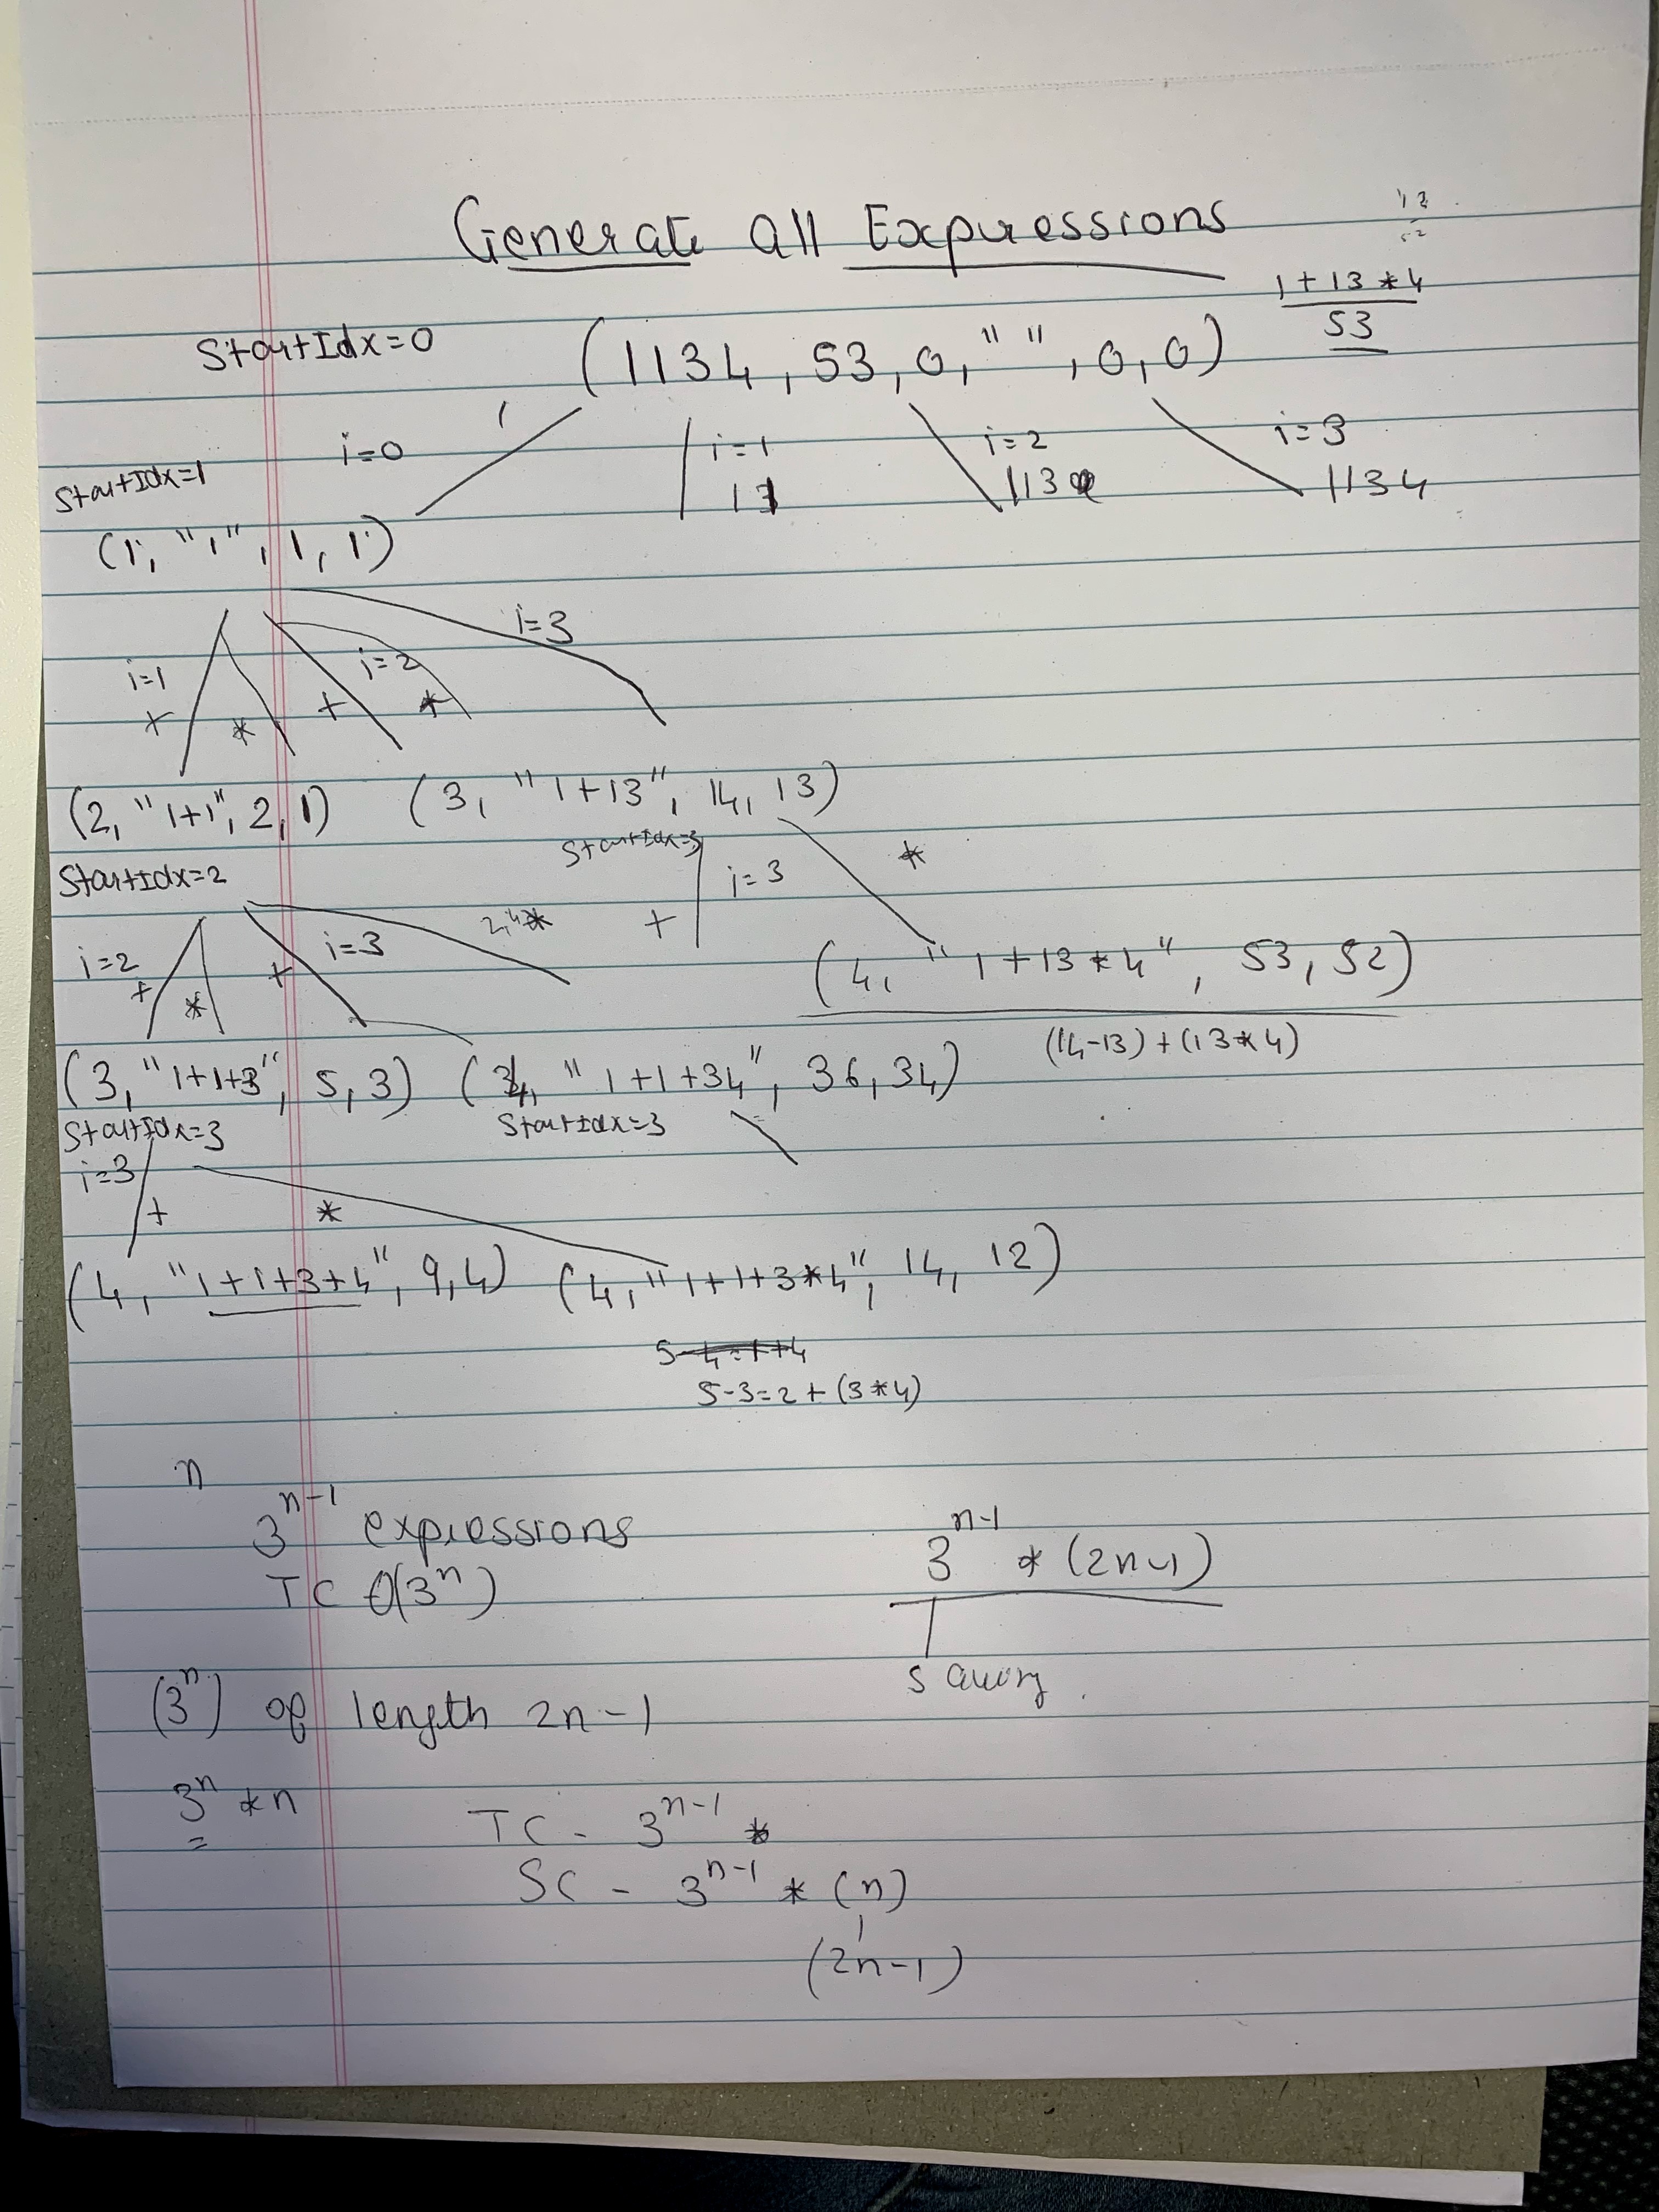 Generate all Expressions
1+13*4
53
StartIdx=0
(1134, 53, 0, " ", 0, 0)
i=0
i=1
i=2
i=3
11
113
1134
StartIdx=1
(1, "1", 1, 1)
i=1
i=2
i=3
+ * + *
(2, "1+1", 2, 1) (3, "1+13", 14, 13)
StartIdx=2
StartIdx=3
i=2
+ *
i=3
+
i=3
+ *
(4, "1+13*4", 53, 52)
(14-13)+(13*4)
(3, "1+1+3", 5, 3) (4, "1+1+34", 36, 34)
StartIdx=3
StartIdx=3
i=3
+ *
(4, "1+1+3+4", 9, 4) (4, "1+1+3*4", 14, 12)
5-4=1+4
5-3=2+(3*4)
n
3^(n-1) expressions
3^(n-1) * (2n-1)
TC O(3^n)
(3^n) of length 2n-1
3^n * n
=
TC - 3^(n-1) *
SC - 3^(n-1) * (n)
(2n-1)